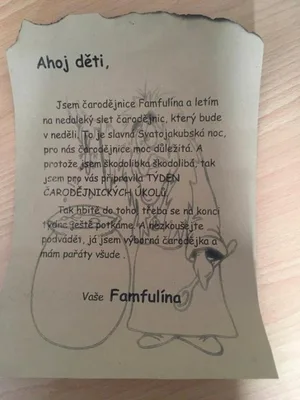 Ahoj děti,
Jsem čarodějnice Famfulína a letím
na nedaleký slet čarodějnic, který bude
v neděli. To je slavná Svatojakubská noc,
pro nás čarodějnice moc důležitá. A
protože jsem škodolibka škodolibá, tak
jsem pro vás připravila TÝDEN
ČARODĚJNICKÝCH ÚKOLŮ.
Tak hbitě do toho, třeba se na konci
týdne ještě potkáme. A nezkoušejte
podvádět, já jsem výborná čarodějka a
mám pařáty všude .
Vaše Famfulína